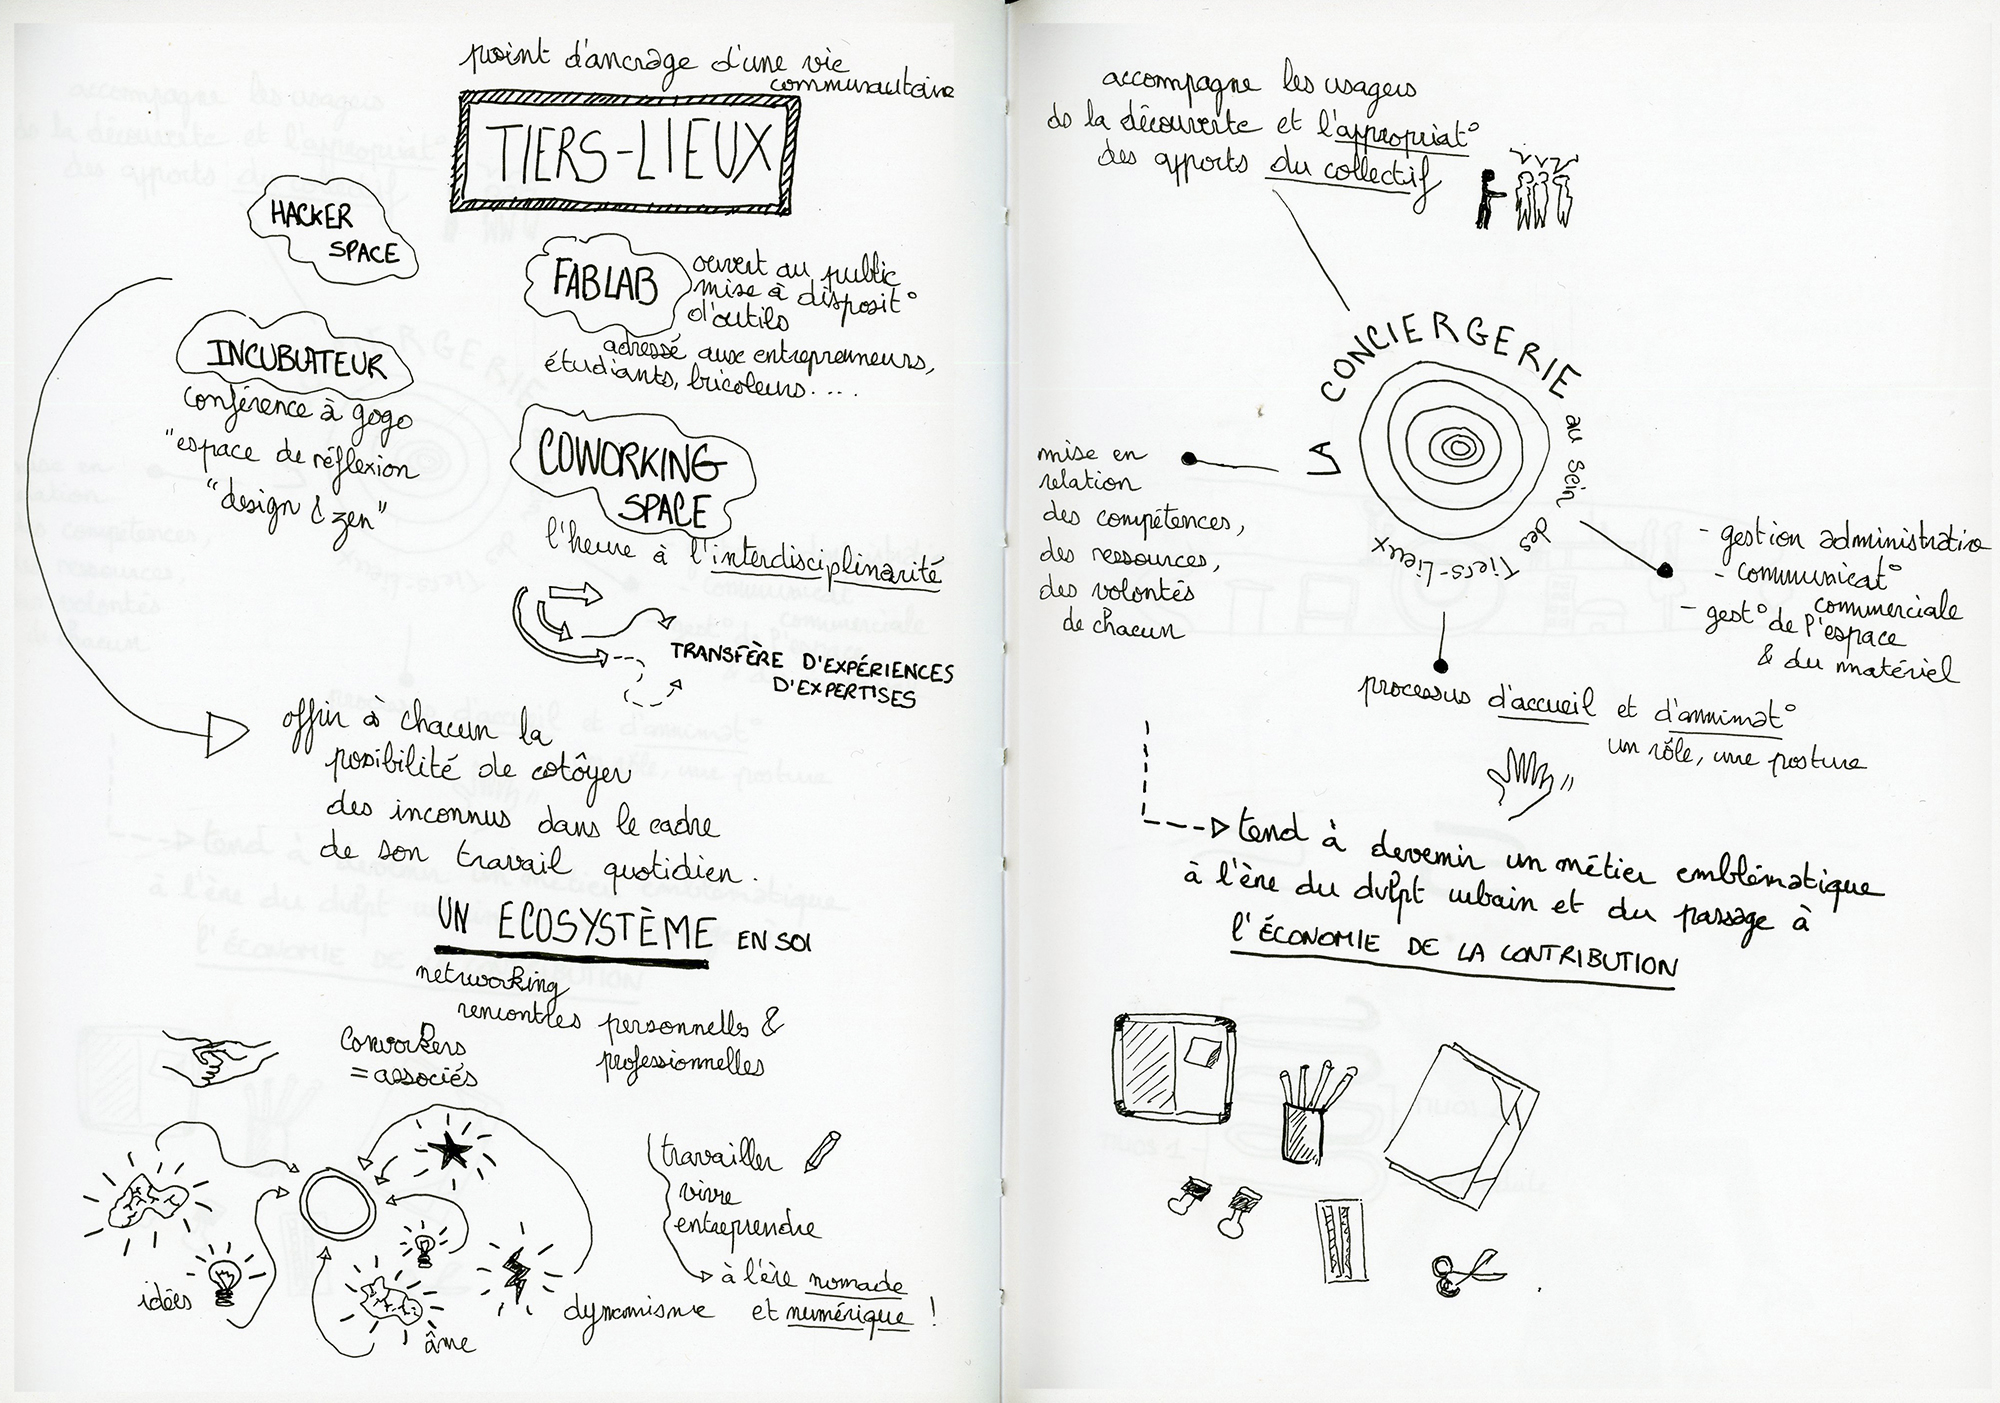 point d'ancrage d'une vie
communautaire
TIERS-LIEUX
HACKER
SPACE
FABLAB
ouvert au public
mise à disposit°
d'outils
adressé aux entrepreneurs,
étudiants, bricoleurs....
INCUBATEUR
conférence à gogo
"espace de réflexion
"design & zen"
COWORKING
SPACE
l'heure à l'interdisciplinarité
TRANSFÈRE D'EXPÉRIENCES
D'EXPERTISES
offrir à chacun la
possibilité de cotôyer
des inconnus dans le cadre
de son travail quotidien.
UN ECOSYSTÈME EN SOI
networking
rencontres personnelles &
professionnelles
Coworkers
= associés
travailler
vivre
entreprendre
à l'ère nomade
et numérique !
idées
âme
dynamisme
accompagne les usagers
ds la découverte et l'appropriat°
des apports du collectif
LA CONCIERGERIE
au sein des Tiers-Lieux
mise en
relation
des compétences,
des ressources,
des volontés
de chacun
- gestion administrative
- communicat°
commerciale
- gest° de l'espace
& du matériel
processus d'accueil et d'animat°
un rôle, une posture
tend à devenir un métier emblématique
à l'ère du dvlpt urbain et du passage à
l'ÉCONOMIE DE LA CONTRIBUTION